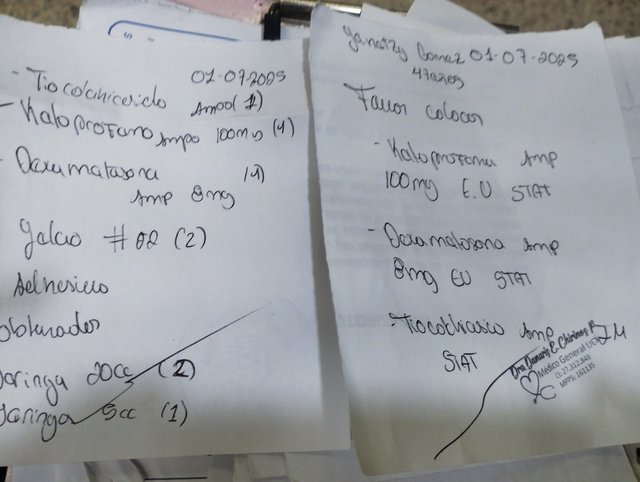 01-07-2025
- Tiocolchicosido Ampo (1)
- Ketoprofeno Ampo 100mg (1)
- Dexametasona (1)
Amp 8mg
Yelco #22 (2)
Adhesivo
Obturador
Jeringa 20cc (2)
Jeringa 5cc (1)
Gomez 01-07-2025
47años
Favor colocar
- Ketoprofeno Amp
100mg E.V STAT
- Dexametasona Amp
8mg EV STAT
- Tiocolchicosido Amp IM
STAT
Médico General UCV